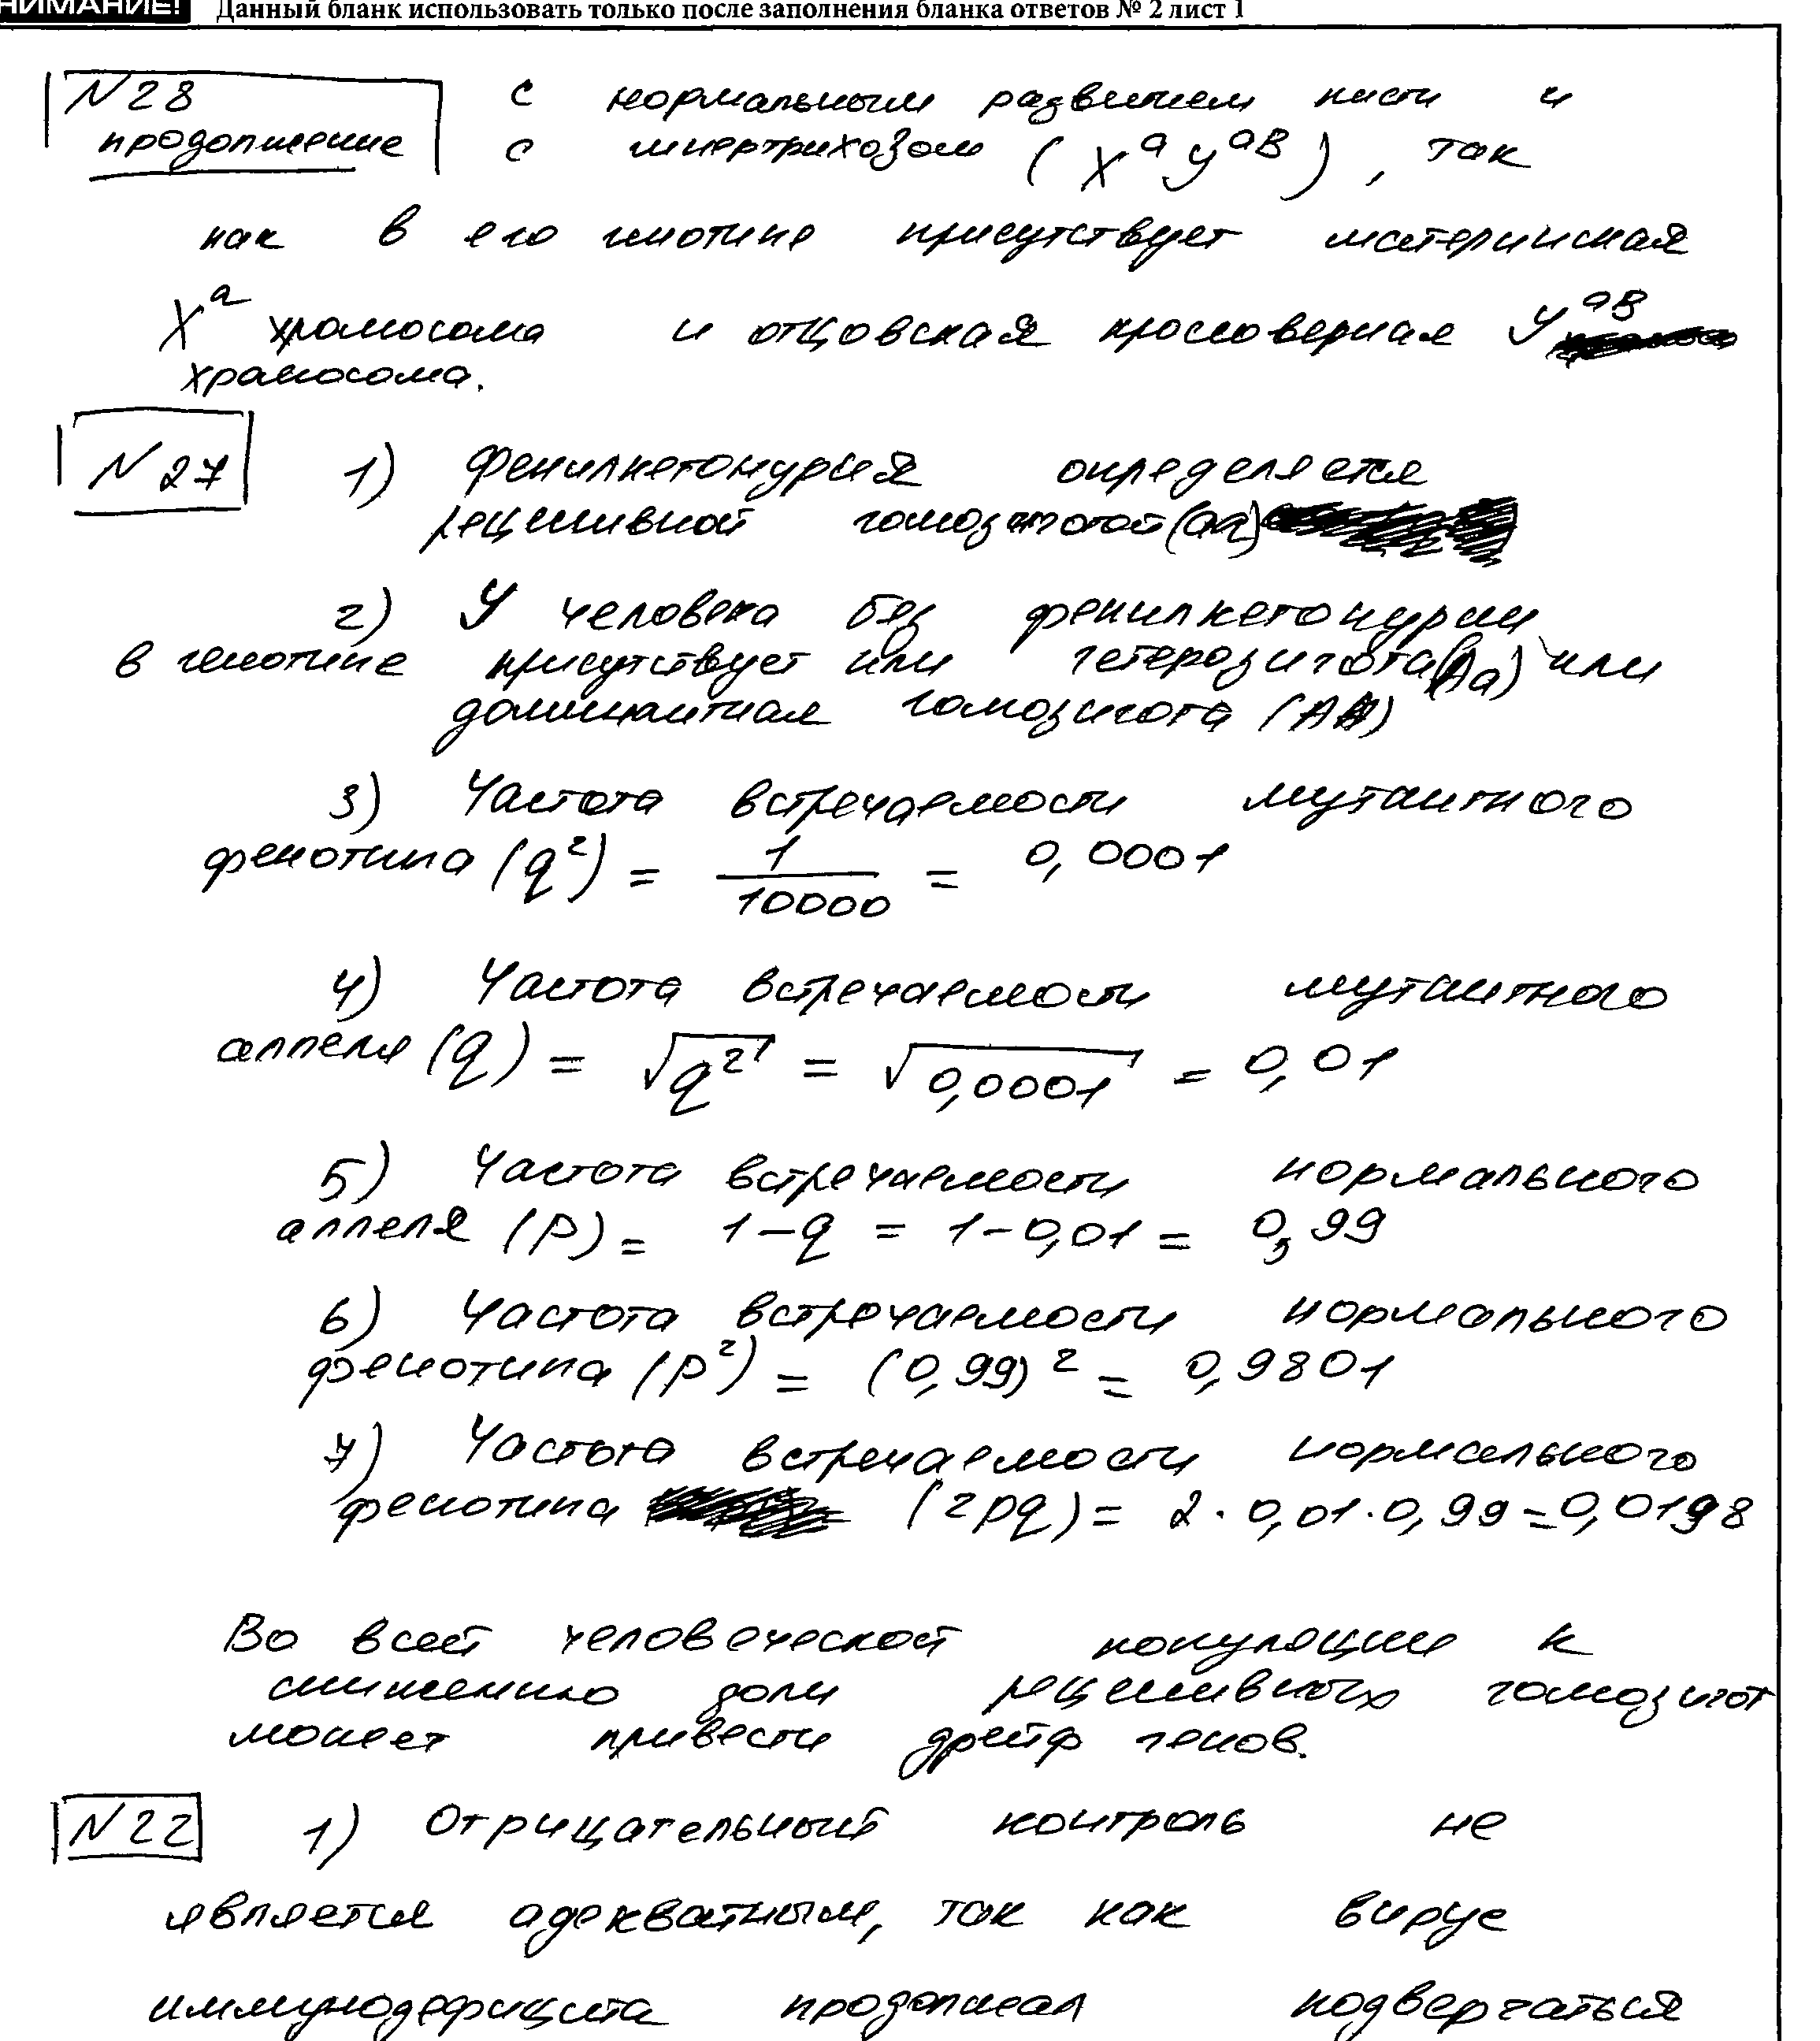 НИМАНИЕ! Данный бланк использовать только после заполнения бланка ответов № 2 лист 1
N28 с нормальным развитием кисти и
продолжение с гипертрихозом (XᵃYᵃᴮ), так
как в его генотипе присутствует материнская
Xᵃ хромосома и отцовская кроссоверная Yᵃᴮ
хромосома.
N27 1) Фенилкетонурия определяется
рецессивной гомозиготой (aa)
2) У человека без фенилкетонурии
в генотипе присутствует или гетерозигота (Aa) или
доминантная гомозигота (AA)
3) Частота встречаемости мутантного
фенотипа (q²) = 1/10000 = 0,0001
4) Частота встречаемости мутантного
аллеля (q) = √q² = √0,0001 = 0,01
5) Частота встречаемости нормального
аллеля (p) = 1-q = 1-0,01 = 0,99
6) Частота встречаемости нормального
фенотипа (p²) = (0,99)² = 0,9801
7) Частота встречаемости нормального
фенотипа (2pq) = 2·0,01·0,99=0,0198
Во всей человеческой популяции к
снижению доли рецессивных гомозигот
может привести дрейф генов.
N22 1) Отрицательный контроль не
является адекватным, так как вирус
иммунодефицита продолжал подвергаться